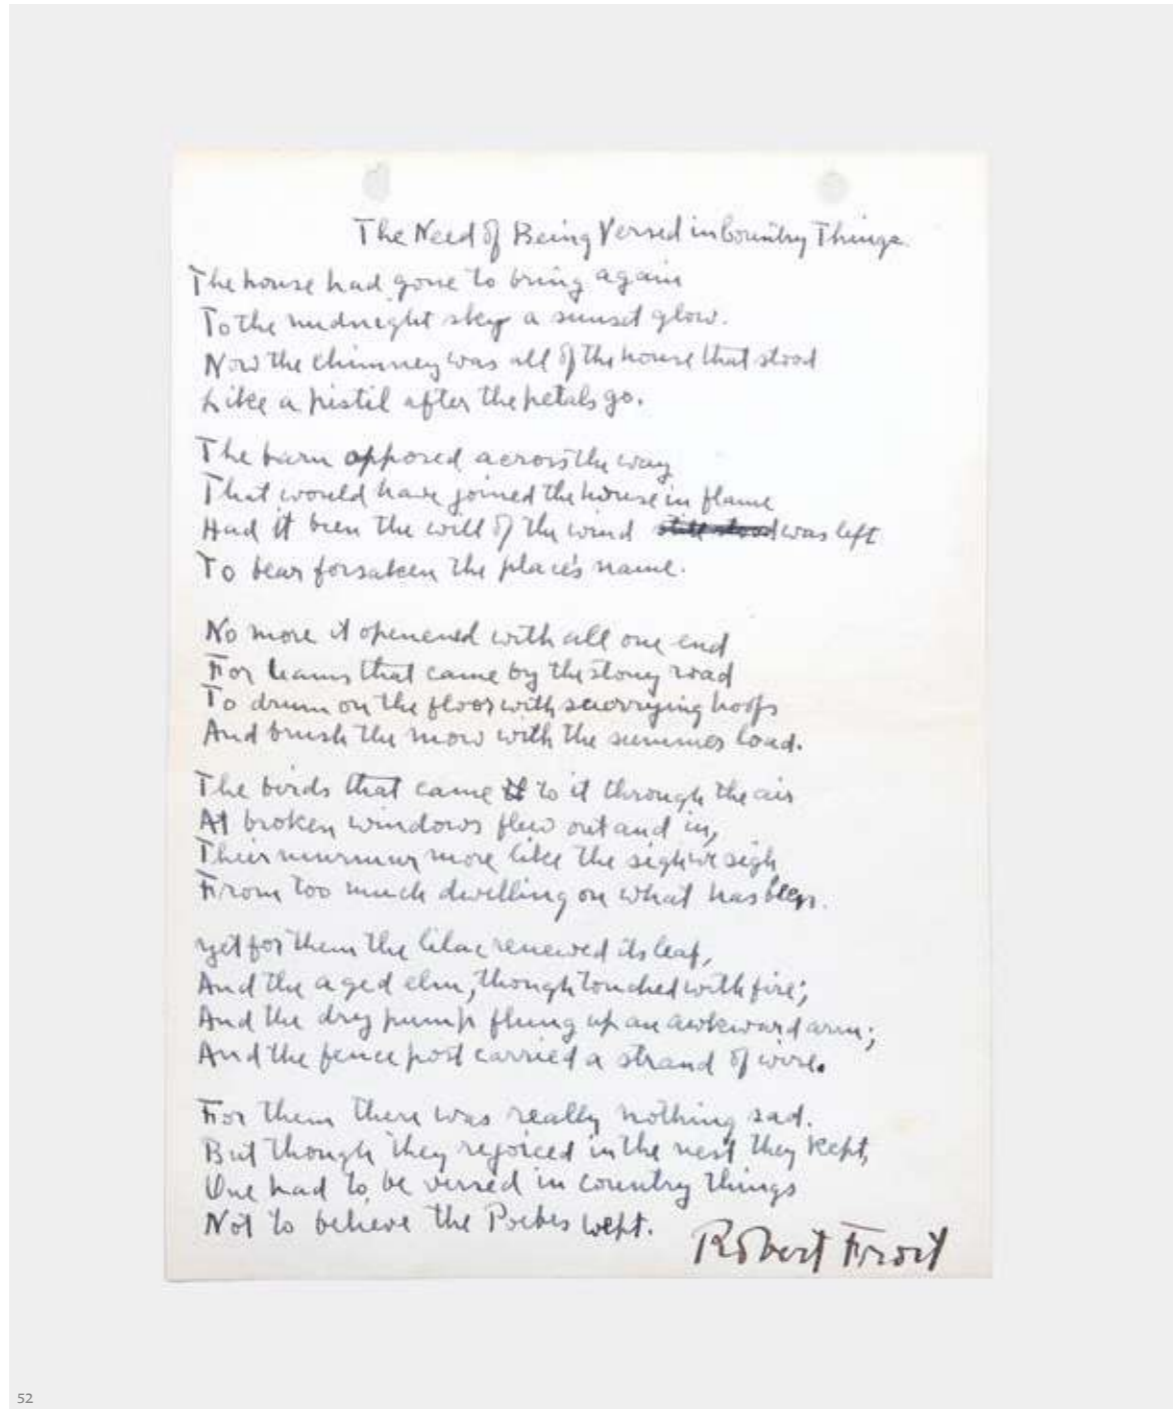 The Need of Being Versed in Country Things.
The house had gone to bring again
To the midnight sky a sunset glow.
Now the chimney was all of the house that stood
Like a pistil after the petals go.
The barn opposed across the way
That would have joined the house in flame
Had it been the will of the wind still stood was left
To bear forsaken the place's name.
No more it openened with all one end
For teams that came by the stony road
To drum on the floor with scurrying hoofs
And brush the mow with the summer load.
The birds that came to it through the air
At broken windows flew out and in,
Their murmur more like the sigh we sigh
From too much dwelling on what has been.
Yet for them the lilac renewed its leaf,
And the aged elm, though touched with fire;
And the dry pump flung up an awkward arm;
And the fence post carried a strand of wire.
For them there was really nothing sad.
But though they rejoiced in the nest they kept,
One had to be versed in country things
Not to believe the Phoebes wept.
Robert Frost
52